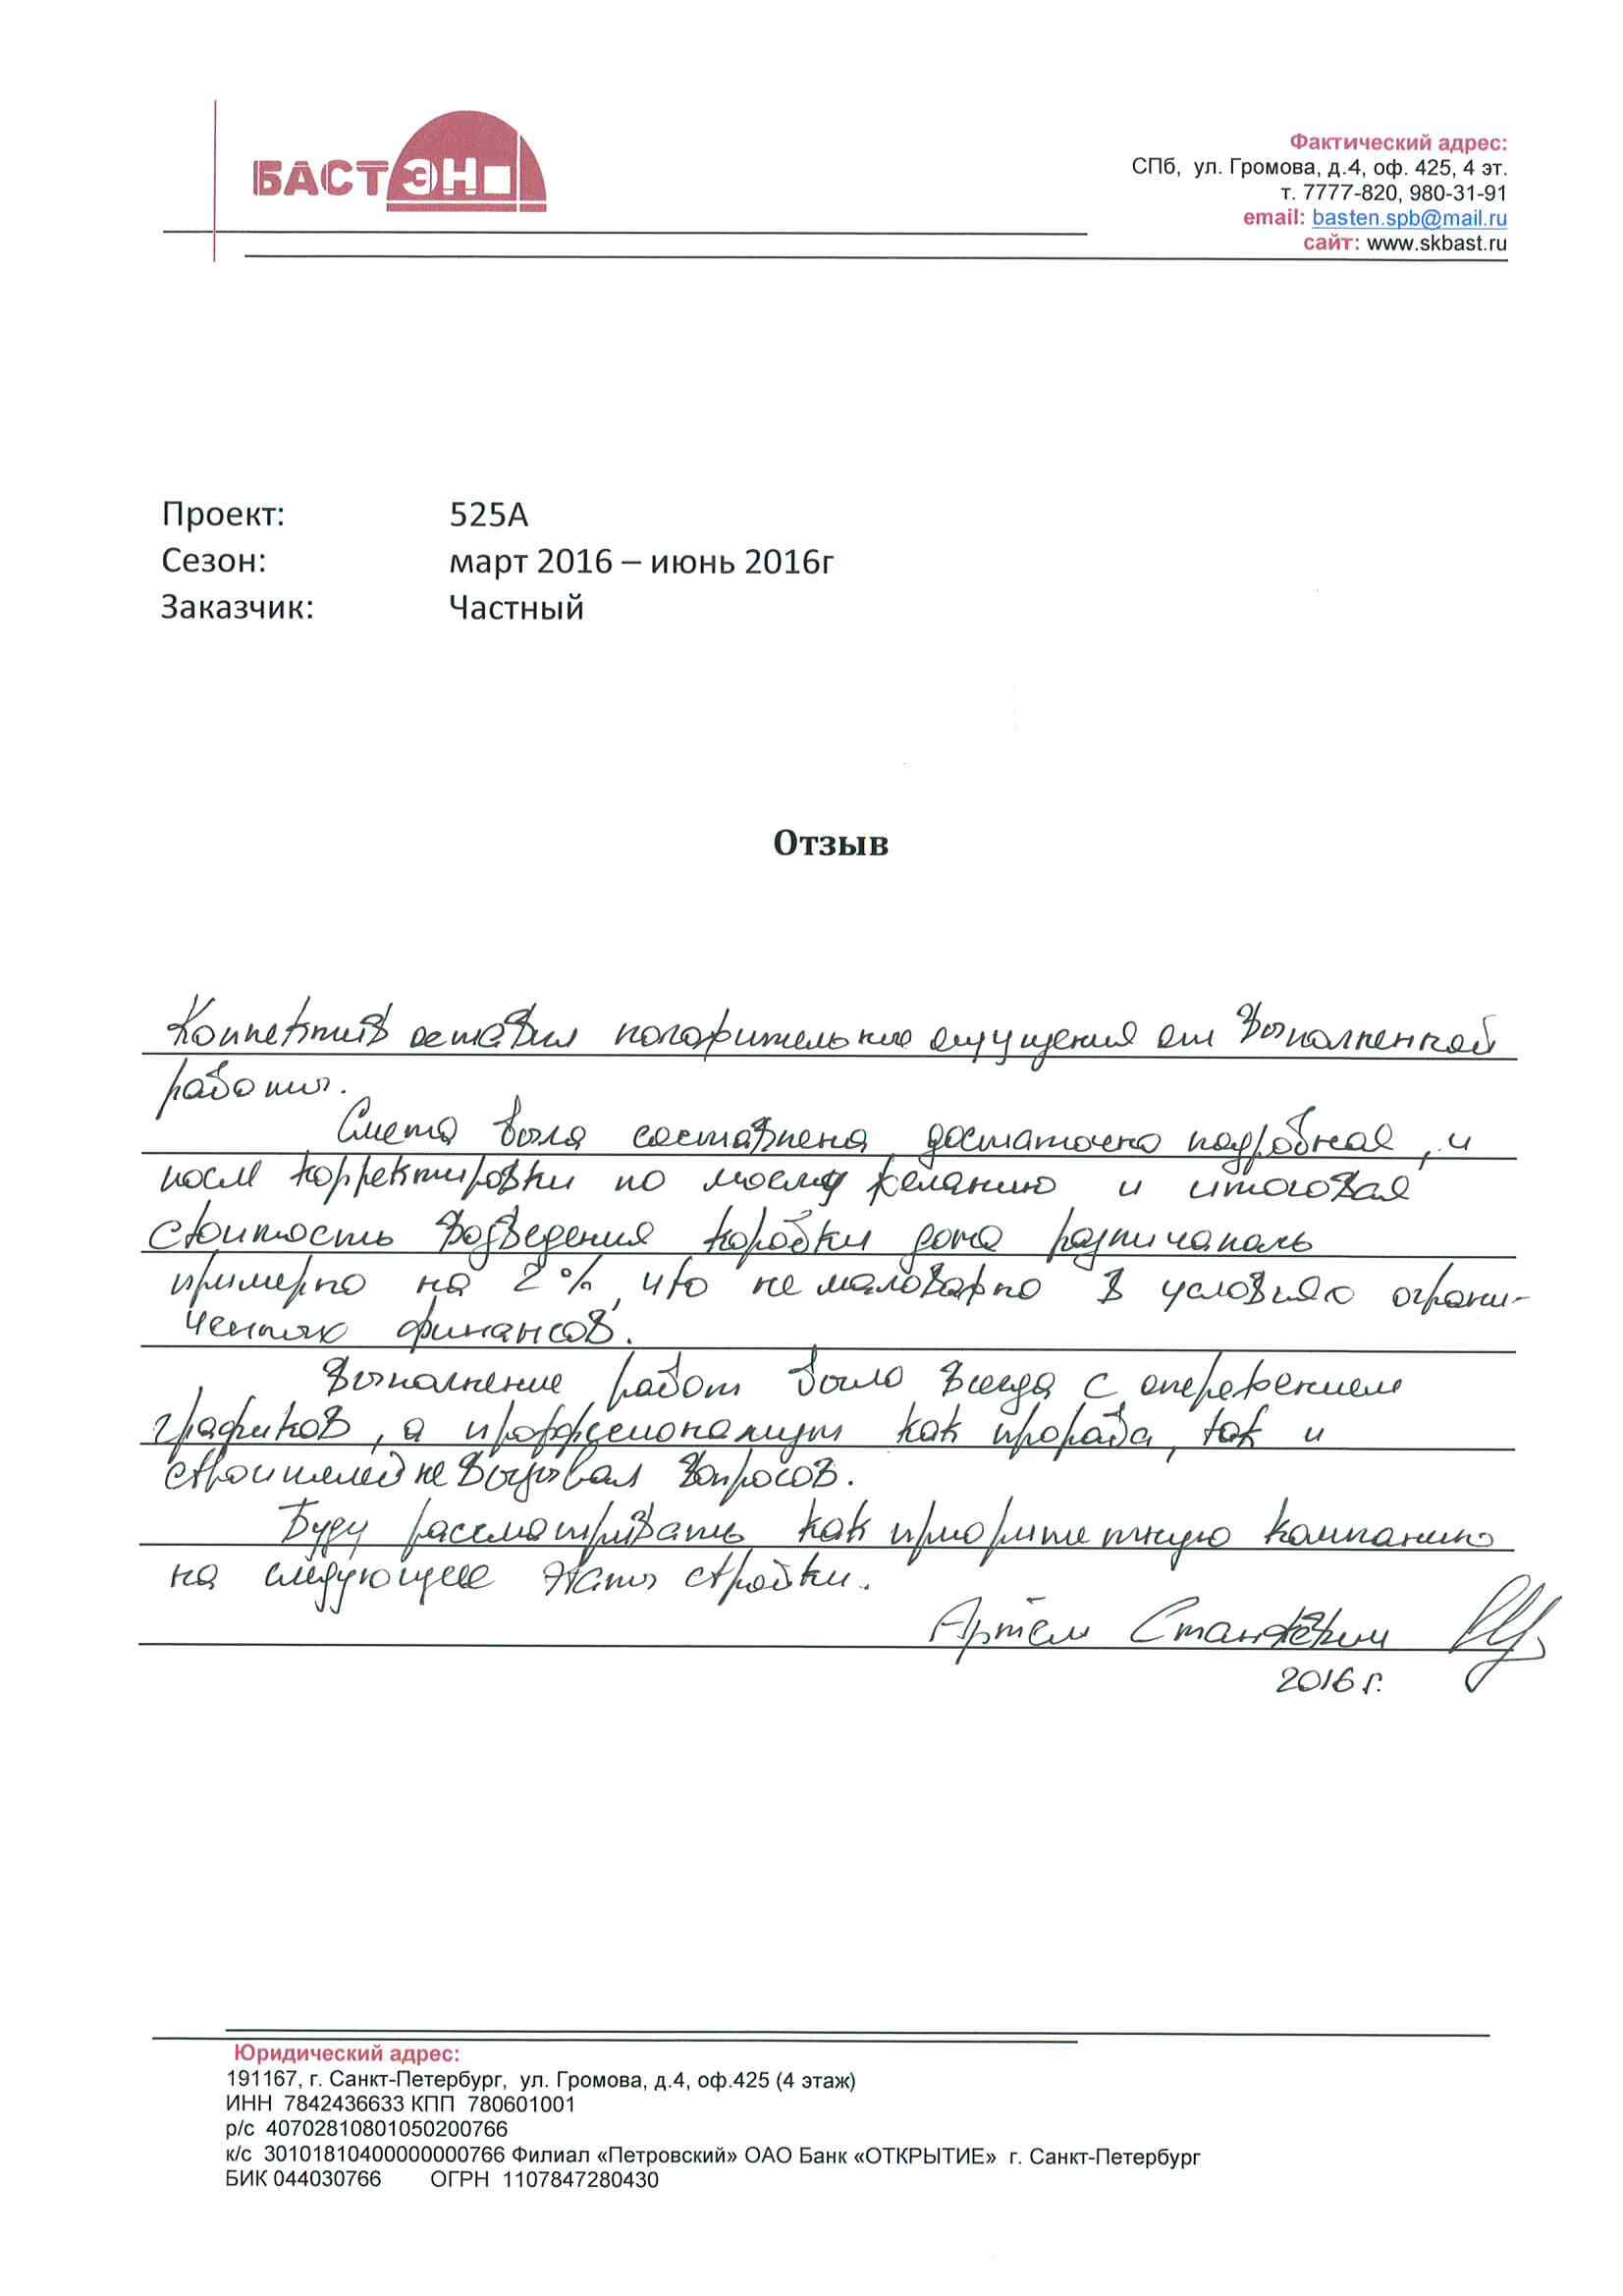 БАСТЭН
Фактический адрес:
СПб, ул. Громова, д.4, оф. 425, 4 эт.
т. 7777-820, 980-31-91
email: basten.spb@mail.ru
сайт: www.skbast.ru
Проект: 525А
Сезон: март 2016 – июнь 2016г
Заказчик: Частный
Отзыв
Коллектив оставил положительные ощущения от выполненной
работы.
Смета была составлена достаточно подробная, и
после корректировки по моему желанию и итоговая
стоимость возведения коробки дома различалась
примерно на 2%, что не маловажно в условиях ограни-
ченных финансов.
Выполнение работ было всегда с опережением
графиков, а профессионализм как прораба, так и
строителей не вызывал вопросов.
Буду рассматривать как приоритетную компанию
на следующее этапы стройки.
Артём
2016 г.
Юридический адрес:
191167, г. Санкт-Петербург, ул. Громова, д.4, оф.425 (4 этаж)
ИНН 7842436633 КПП 780601001
р/с 40702810801050200766
к/с 30101810400000000766 Филиал «Петровский» ОАО Банк «ОТКРЫТИЕ» г. Санкт-Петербург
БИК 044030766 ОГРН 1107847280430